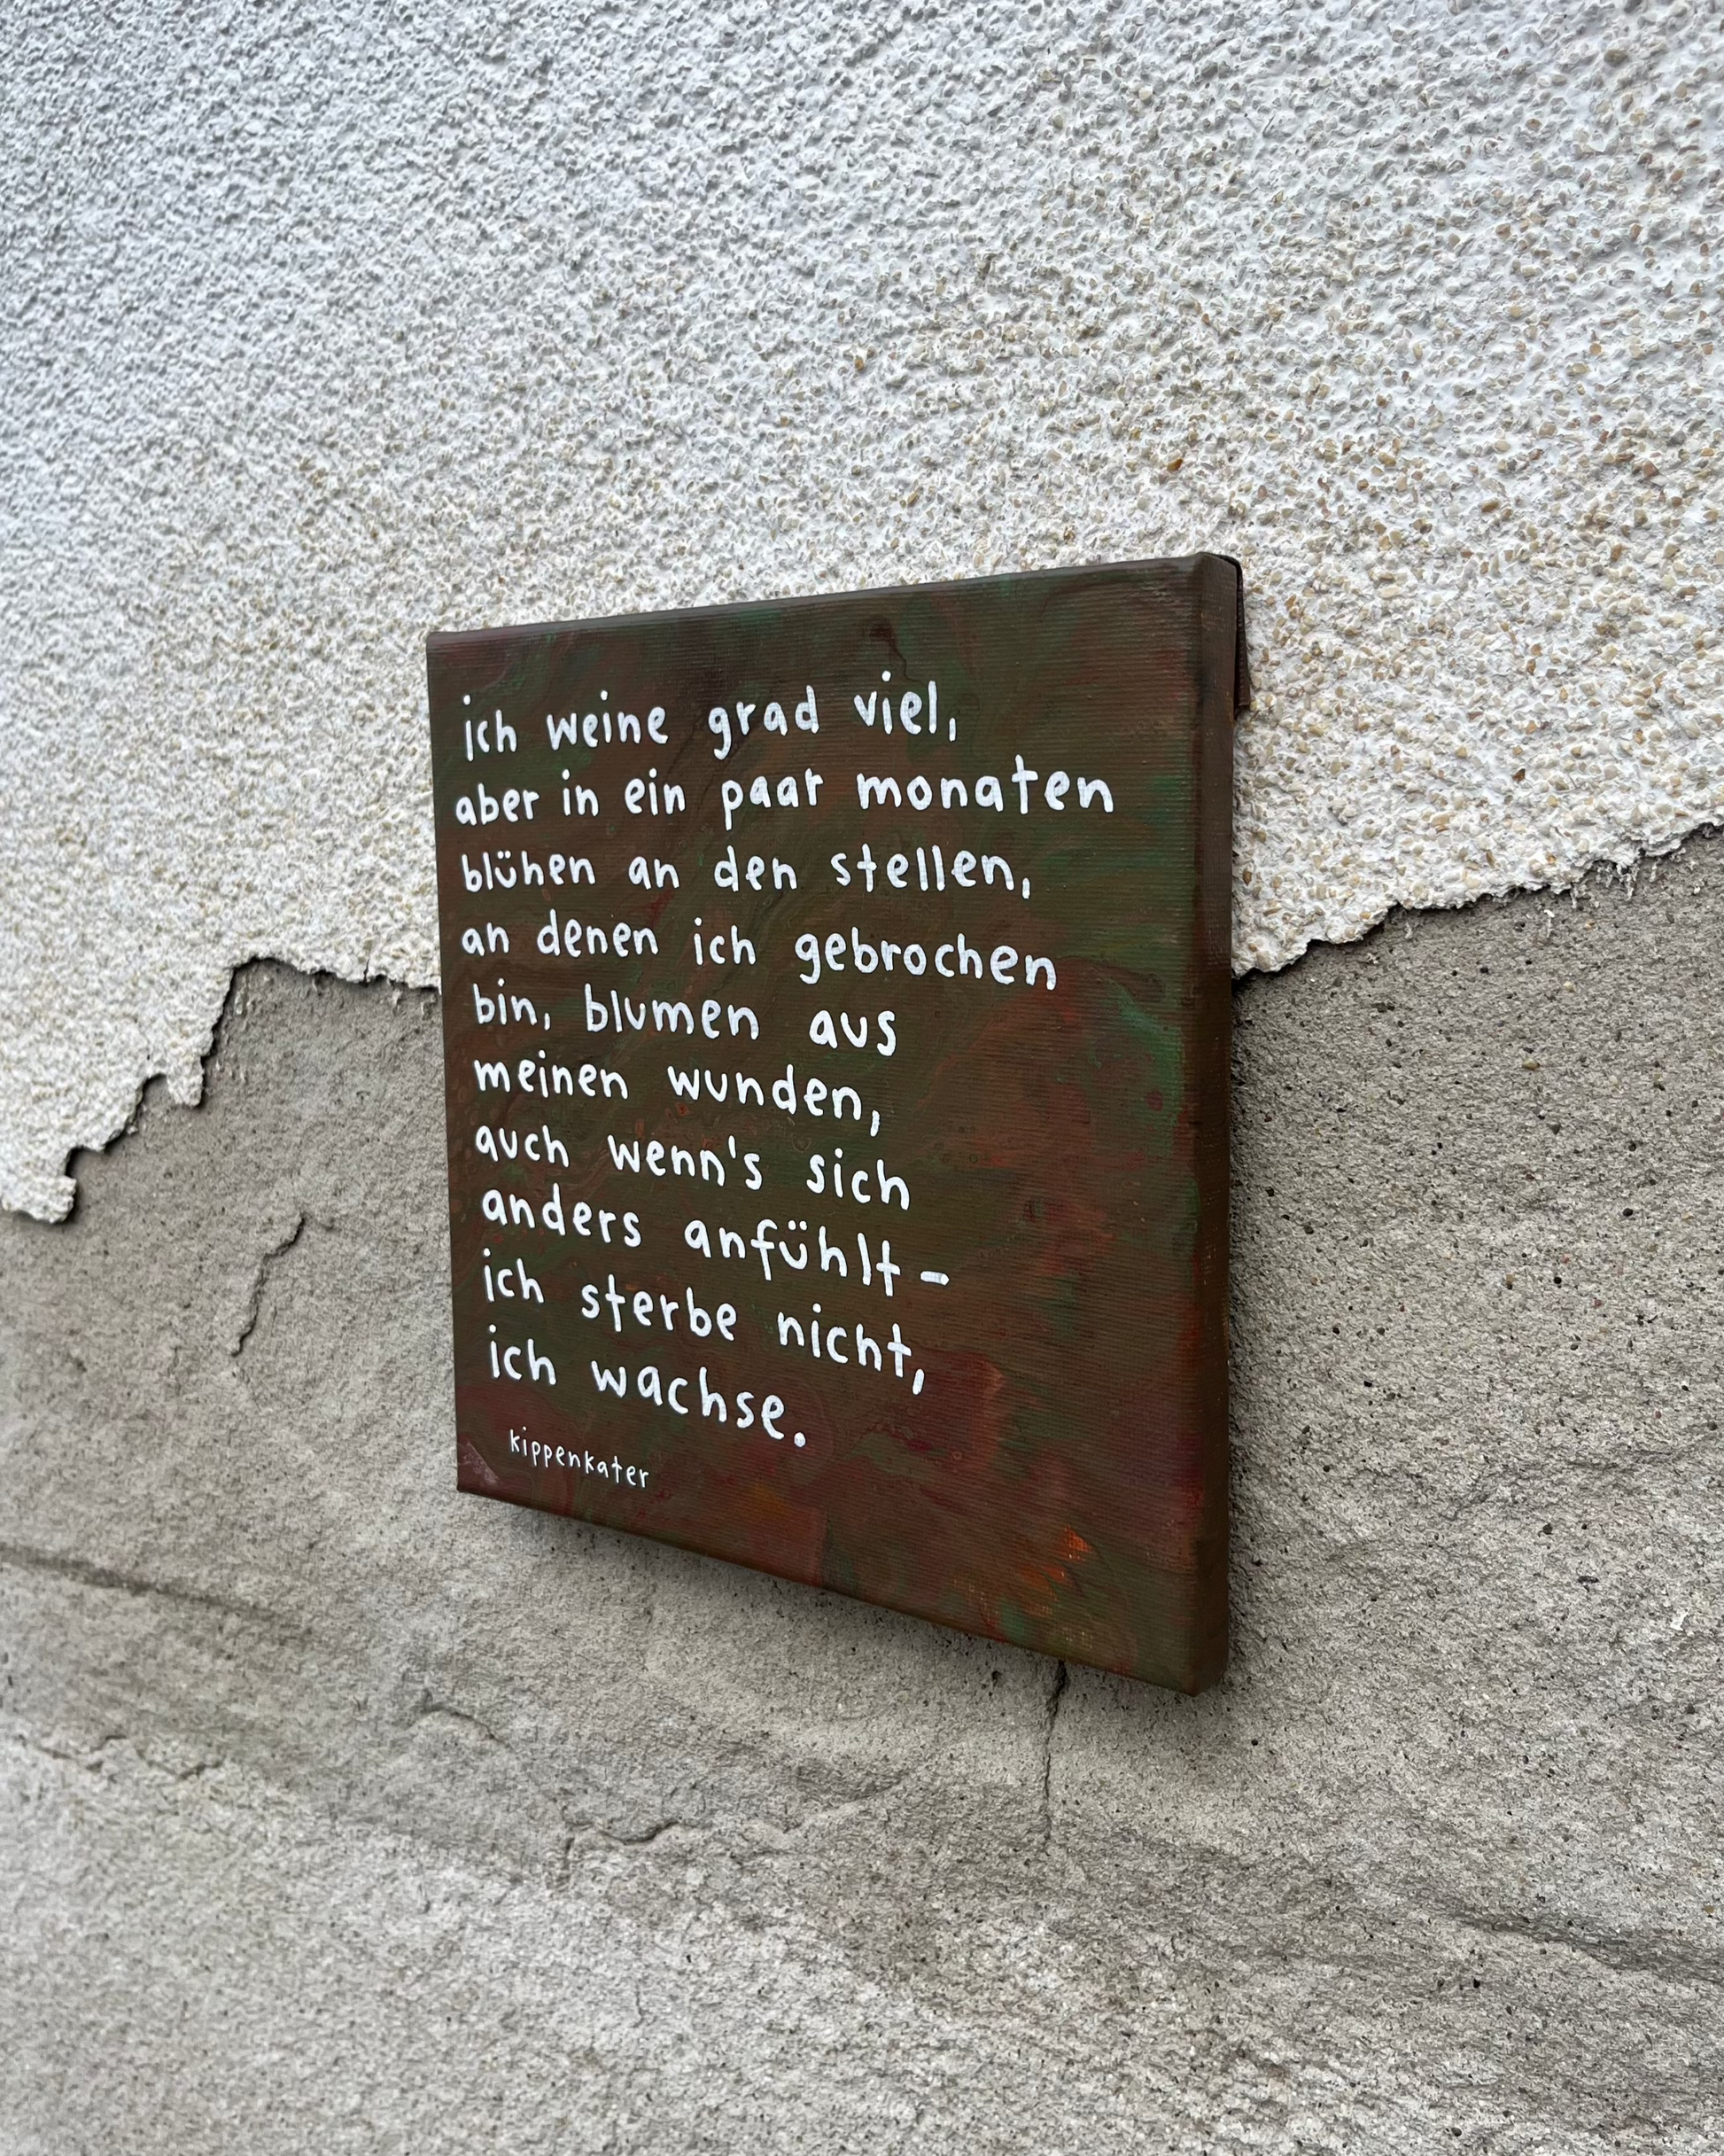 ich weine grad viel,
aber in ein paar monaten
blühen an den stellen,
an denen ich gebrochen
bin, blumen aus
meinen wunden,
auch wenn's sich
anders anfühlt-
ich sterbe nicht,
ich wachse.
kippenkater